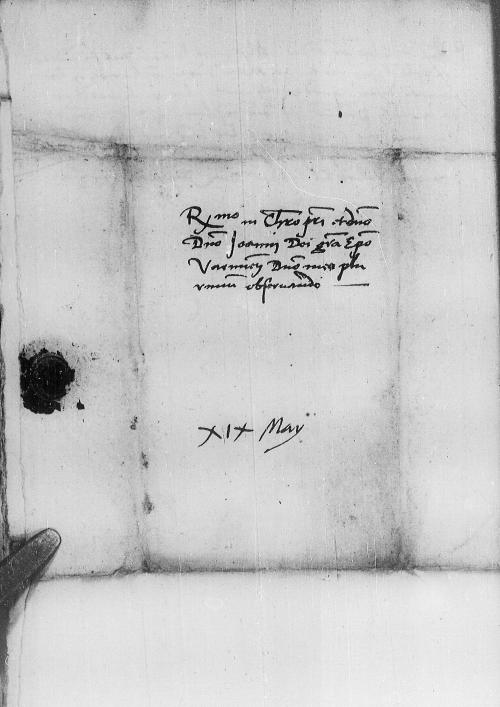 Rxmo in Chro pri et dno
Dno Joanni Dei gra Epo
Varmien Dno meo plu
rimum obseruando
XIX May